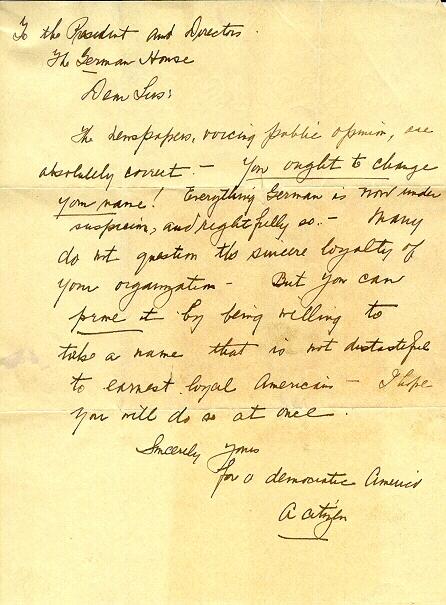 To the President and Directors.
The German House
Dear Sirs:
The newspapers, voicing public opinion, are
absolutely correct. — You ought to change
your name! Everything German is now under
suspicion, and rightfully so. — Many
do not question the sincere loyalty of
your organization — But you can
prove it by being willing to
take a name that is not distasteful
to earnest loyal Americans — I hope
you will do so at once.
Sincerely yours
for a democratic America
A citizen